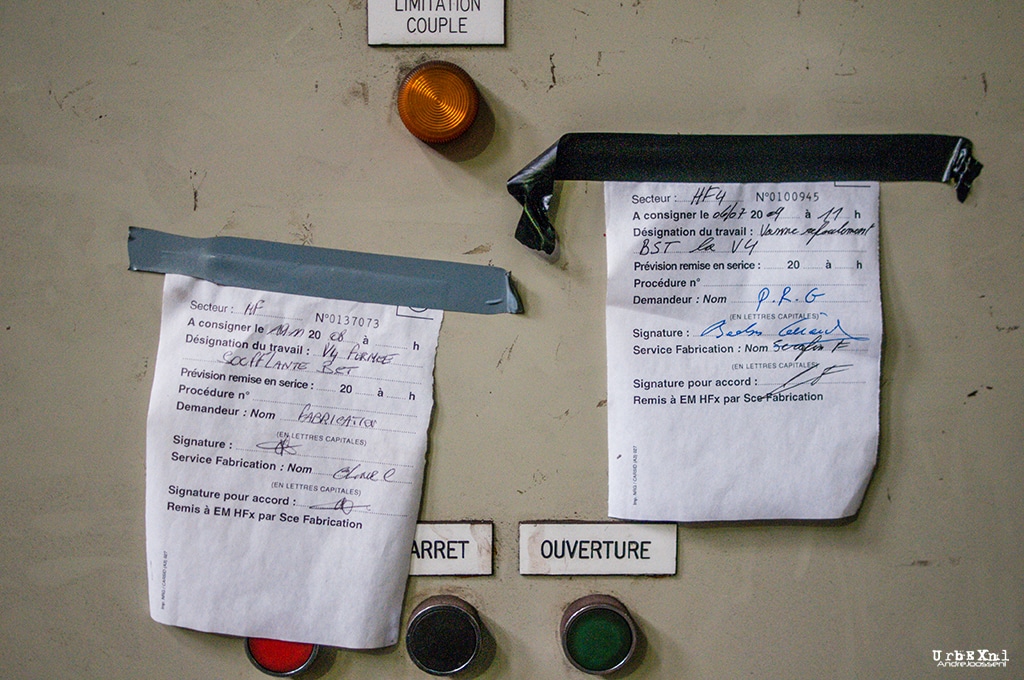 LIMITATION
COUPLE
Secteur : HF N°0137073
A consigner le 20 08 à h
Désignation du travail : V4 FERMEE
SOUFFLANTE BST
Prévision remise en serice : 20 à h
Procédure n°
Demandeur : Nom FABRICATION
(EN LETTRES CAPITALES)
Signature :
Service Fabrication : Nom
(EN LETTRES CAPITALES)
Signature pour accord :
Remis à EM HFx par Sce Fabrication
Imp. NRG / CASSID (A3) 927
Secteur : HF4 N°0100945
A consigner le 06/07 20 09 à 11 h
Désignation du travail : Vanne refoulement
BST la V4
Prévision remise en serice : 20 à h
Procédure n°
Demandeur : Nom P.R.G
(EN LETTRES CAPITALES)
Signature :
Service Fabrication : Nom Serafin F
(EN LETTRES CAPITALES)
Signature pour accord :
Remis à EM HFx par Sce Fabrication
Imp. NRG / CASSID (A3) 927
ARRET
OUVERTURE
UrbEXnl
AndreJoosseni